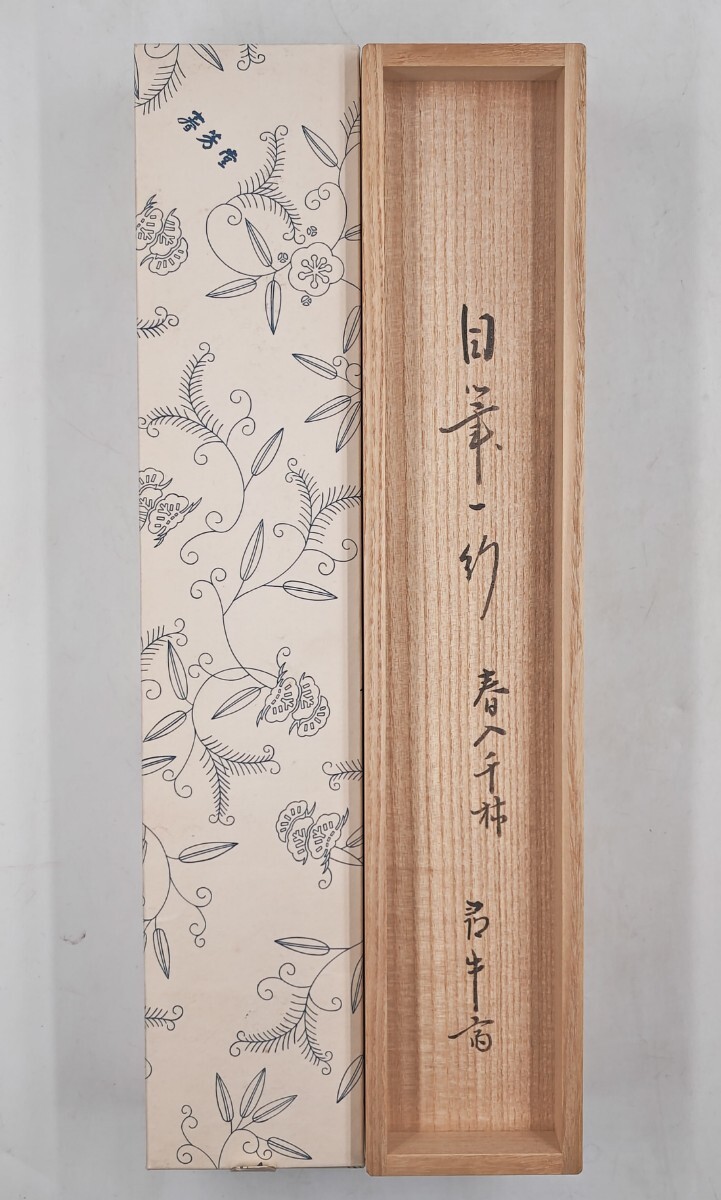 春芳堂
自筆一行 春入千林 尋牛斎